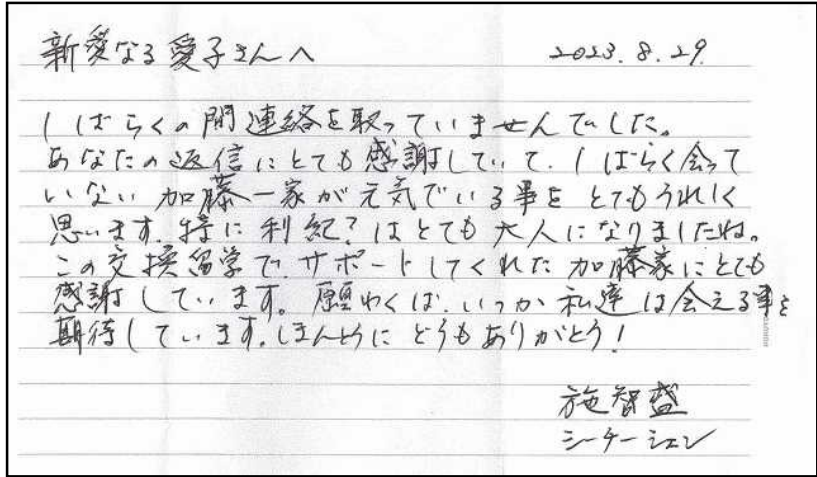 新愛なる愛子さんへ 2023.8.29.
しばらくの間連絡を取っていませんでした。
あなたの返信にとても感謝していて、しばらく会って
いない加藤一家が元気でいる事をとてもうれしく
思います。特に利紀?はとても大人になりましたね。
この交換留学で、サポートしてくれた加藤家にとても
感謝しています。願わくば、いつか私達は会える事を
期待しています。ほんとうにどうもありがとう!
施智盛
シーチーシェン